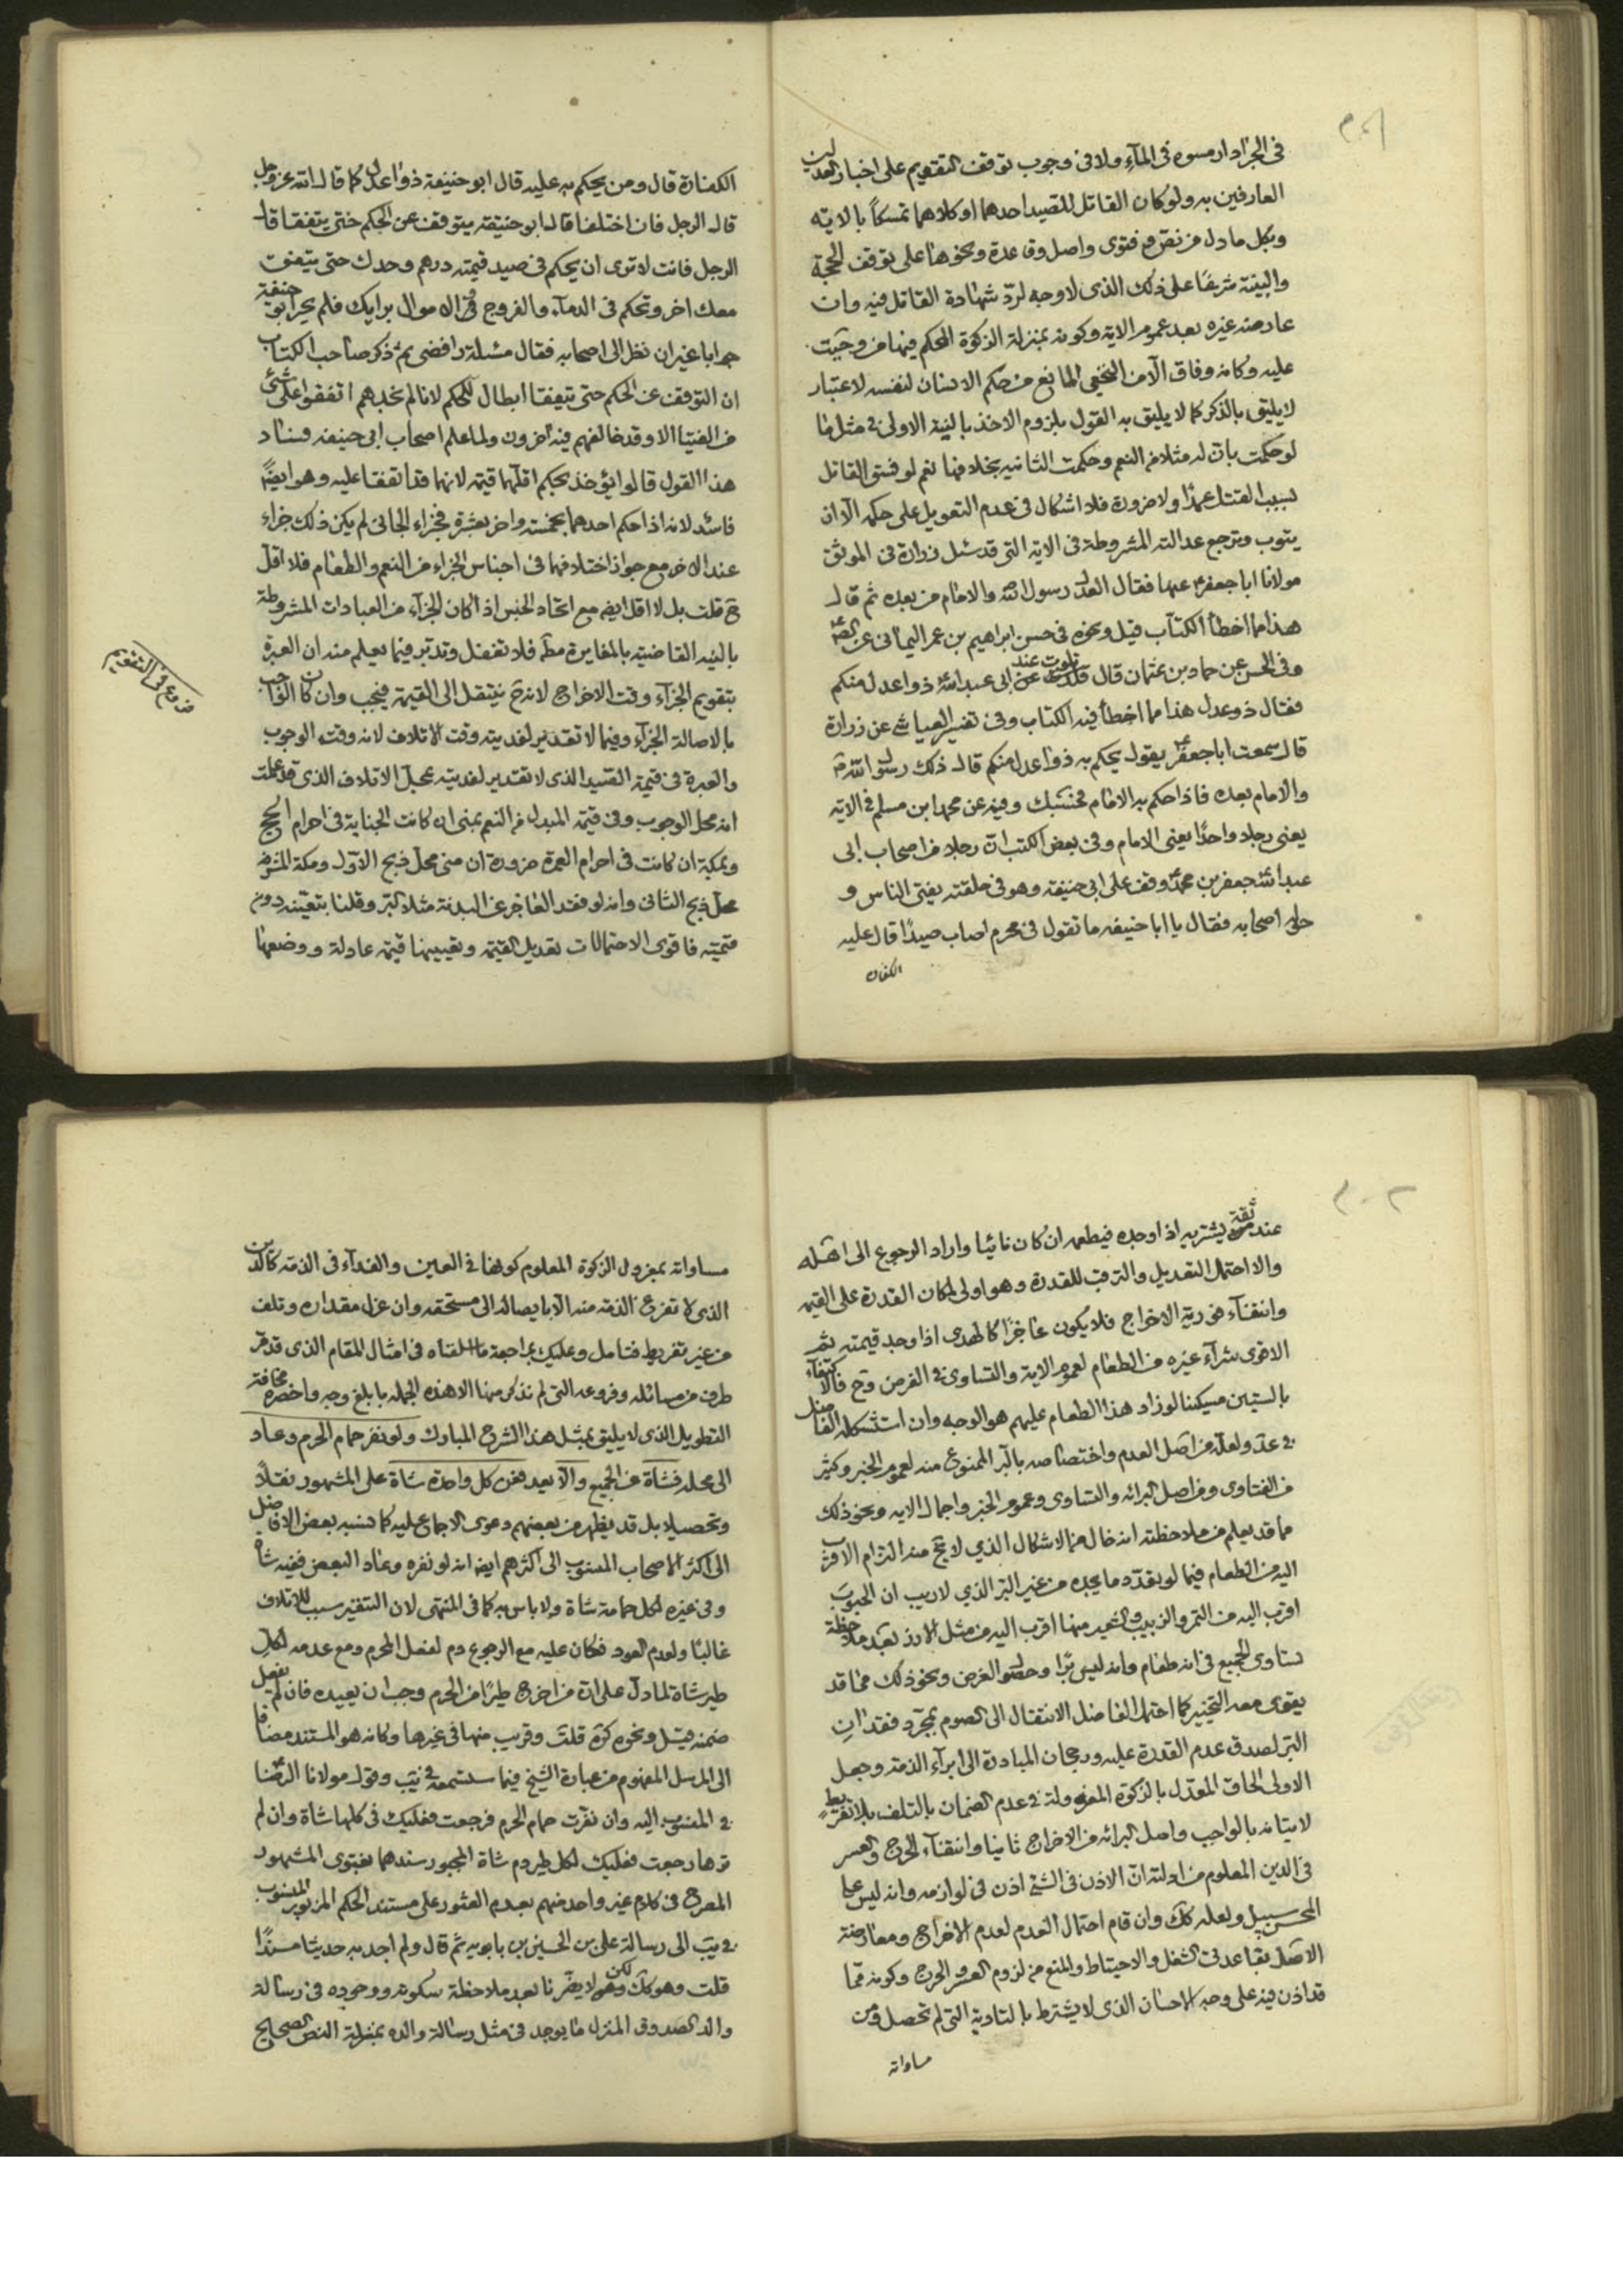 في الجراد ارمسوه في الماء ولا في وجوب توقف التقويم على اخبار العدلين
العارفين به ولو كان القاتل للصيد احدهما او كلاهما تمسكاً بالاية
وبكل ما دل من نص وفتوى واصل وقاعدة ونحوها على توقف الحجة
والبينة شرعًا على ذلك الذي لا وجه لردّ شهادة القاتل فيه وان
عارضه غيره بعد عموم الاية وكونه بمنزلة الزكوة المحكم فيها من وجبت
عليه وكانه وفاق الا من النخعي المانع من حكم الانسان لنفسه لاعتبار
لا يليق بالذكر كما لا يليق به القول بلزوم الاخذ بالبينة الاولى في مثل ما
لو حكمت بان له مثلا من النعم وحكمت الثانيه بخلافها نعم لو فسق القاتل
بسبب القتل عمدًا ولا ضرورة فلا اشكال في عدم التعويل على حكمه الا ان
يتوب وترجع عدالته المشروطة في الاية التي قد سئل زرارة في الموثق
مولانا ابا جعفر ع عنها فقال العدل رسول الله والامام من بعده ثم قال
هذا مما اخطأ الكتاب قيل ونحوه في حسن ابراهيم بن عمر اليماني عن الص ع
وفي الحسن عن حماد بن عثمان قال تلوت عند ابي عبد الله ذوا عدل منكم
فقال ذو عدل هذا مما اخطأ فيه الكتاب وفي تفسير العياشي عن زرارة
قال سمعت ابا جعفر ع يقول يحكم به ذوا عدل منكم قال ذلك رسول الله ص
والامام بعده فاذا حكم به الامام فحسبك وفيه عن محمد ابن مسلم في الاية
يعني رجلا واحدًا يعني الامام وفي بعض الكتب ان رجلا من اصحاب ابي
عبد الله جعفر بن محمد وقف على ابي حنيفة وهو في حلقته يفتي الناس و
حوله اصحابه فقال يا ابا حنيفه ما تقول في محرم اصاب صيدًا قال عليه
الكفارة
الكفارة قال ومن يحكم به عليه قال ابو حنيفة ذوا عدل كما قال الله عز وجل
قال الرجل فان اختلفا قال ابو حنيفة يتوقف عن الحكم حتى يتفقا قال
الرجل فانت لا ترى ان يحكم في صيد قيمته درهم وحدك حتى يتفق
معك اخر وتحكم في الدماء والفروج و في الاموال برايك فلم يحر ابو حنيفة
جوابا غير ان نظر الى اصحابه فقال مسئلة رافضي ثم ذكر صاحب الكتاب
ان التوقف عن الحكم حتى يتفقا ابطال للحكم لانا لم نجدهم اتفقوا على شئ
من الفتيا الا وقد خالفهم فيه آخرون ولما علم اصحاب ابي حنيفه فساد
هذا القول قالوا يؤخذ بحكم اقلهما قيمة لانهما قد اتفقا عليه وهو ايضًا
فاسد لانه اذا حكم احدهما بخمسة واخر بعشرة فجزاء الجاني لم يكن ذلك جزاء
عند الاخر مع جواز اختلافهما في اجناس الجزاء من النعم والطعام فلا اقل
ح قلت بل لا اقل ايضا مع اتحاد الجنس اذا كان الجزاء من العبادات المشروطة
بالنيه القاضية بالمغايرة مط فلا تغفل وتدبر فيما يعلم منه ان العبرة
بتقويم الجزاء وقت الاخراج لانه ح ينتقل الى القيمة فيجب وان كان الواجب
بالاصالة الجزاء وفيما لا تقدير لفديته وقت الاتلاف لانه وقت الوجوب
والعبرة في قيمة الصيد الذي لا تقدير لفديته بمحل الاتلاف الذي قد علمت
انه محل الوجوب وفي قيمة المبدل من النعم بمنى ان كانت الجناية في احرام الحج
وبمكة ان كانت في احرام العمرة ضرورة ان منى محل ذبح الاول ومكة المشرفة
محل ذبح الثاني وانه لو فقد العاجز عن البدنة مثلا البر وقلنا بتعينه دون
قيمته فاقوى الاحتمالات تعديل القيمة وتعيينها قيمة عادلة ووضعها
فروع في التقويم
عند ثقة يشتريه اذا وجده فيطعمه ان كان نائيا واراد الرجوع الى اهله
والا احتمل التعديل والترقب للقدرة وهو اولى لمكان القدرة على القيمة
وانتفاء فورية الاخراج فلا يكون عاجزًا كالهدى اذا وجد قيمته ثم
الاقوى شراء غيره من الطعام لعموم الاية والتساوى في الغرض وح فالاكتفاء
بالستين مسكينا لو زاد هذا الطعام عليهم هو الوجه وان استشكله الفاضل
في عد ولعله من اصل العدم واختصاصه بالبر الممنوع منه لعموم الخبر وكثير
من الفتاوى ومن اصل البرائة والتساوى وعموم الخبر واجمال الاية ونحو ذلك
مما قد يعلم من ملاحظته انه خال من الاشكال الذي لا يتجه منه التزام الاقرب
اليه من الطعام فيما لو تعدد ما يجده من غير البر الذي لا ريب ان الحبوب
اقرب اليه من التمر والزبيب والشعير منها اقرب اليه من مثل الارز بعد ملاحظة
تساوى الجميع في انه طعام وانه ليس برًا وحصول الغرض ونحو ذلك مما قد
يقوى معه التخيير كما احتمل الفاضل الانتقال الى الصوم بمجرد فقدان
البر لصدق عدم القدرة عليه ورجحان المبادرة الى ابراء الذمة وجعل
الاولى الحاق المعدل بالزكوة المعزولة في عدم الضمان بالتلف بلا تفريط
لاتيانه بالواجب واصل البرائة من الاخراج ثانيا وانتفاء الحرج والعسر
في الدين المعلوم من ادلته ان الاذن في الشئ اذن في لوازمه وانه ليس على
المحسن سبيل ولعله كك وان قام احتمال العدم لعدم الاخراج ومعارضة
الاصل بقاعدتي الشغل والاحتياط والمنع من لزوم العسر والحرج وكونه مما
قد اذن فيه على وجه الاحسان الذي لا يشترط بالتادية التي لم تحصل ومن
مساواته
مساواته بمعزول الزكوة المعلوم كونها في العين والفداء في الذمة كالدين
الذي لا تفرغ الذمة منه الا بايصاله الى مستحقه وان عزل مقداره وتلف
من غير تفريط فتامل وعليك بمراجعة ما القناه في امثال المقام الذي قد مر
طرف من مسائله وفروعه التي لم نذكر منها الا هذه الجملة بابلغ وجه واخصره مخافة
التطويل الذي لا يليق بمثل هذا الشرح المبارك ولو نفر حمام الحرم وعاد
الى محله فشاة عن الجميع والا يعد فعن كل واحدة شاة على المشهور نقلاً
وتحصيلا بل قد يظهر من بعضهم دعوى الاجماع عليه كما نسبه بعض الافاضل
الى اكثر الاصحاب المنسوب الى اكثرهم ايضا انه لو نفره وعاد البعض ففيه شاة
وفي غيره لكل حمامة شاة ولا باس به كما في المنتهى لان التنفير سبب للاتلاف
غالبًا ولعدم العود فكان عليه مع الرجوع دم لفعل المحرم ومع عدمه لكل
طير شاة لما دل على ان من اخرج طيرًا من الحرم وجب ان يعيده فان لم يفعل
ضمنه قيل ونحوه كره قلت وقريب منها في غيرها وكانه هو المستند مضافا
الى المرسل المفهوم من عبارة الشيخ فيما ستسمعه في يب وقول مولانا الرضا ع
في المنسوب اليه وان نفرت حمام الحرم فرجعت فعليك في كلها شاة وان لم
ترها رجعت فعليك لكل طير دم شاة المجبور سندهما بفتوى المشهور
المصرح في كلام غير واحد منهم بعدم العثور على مستند الحكم المزبور المنسوب
في يب الى رسالة علي بن الحسين بن بابويه ثم قال ولم اجد به حديثا مسندًا
قلت وهو كك لكن لا يضرنا بعد ملاحظة سكوته ووجوده في رسالة
والد الصدوق المنزل ما يوجد في مثل رسالة والده بمنزلة النص الصحيح